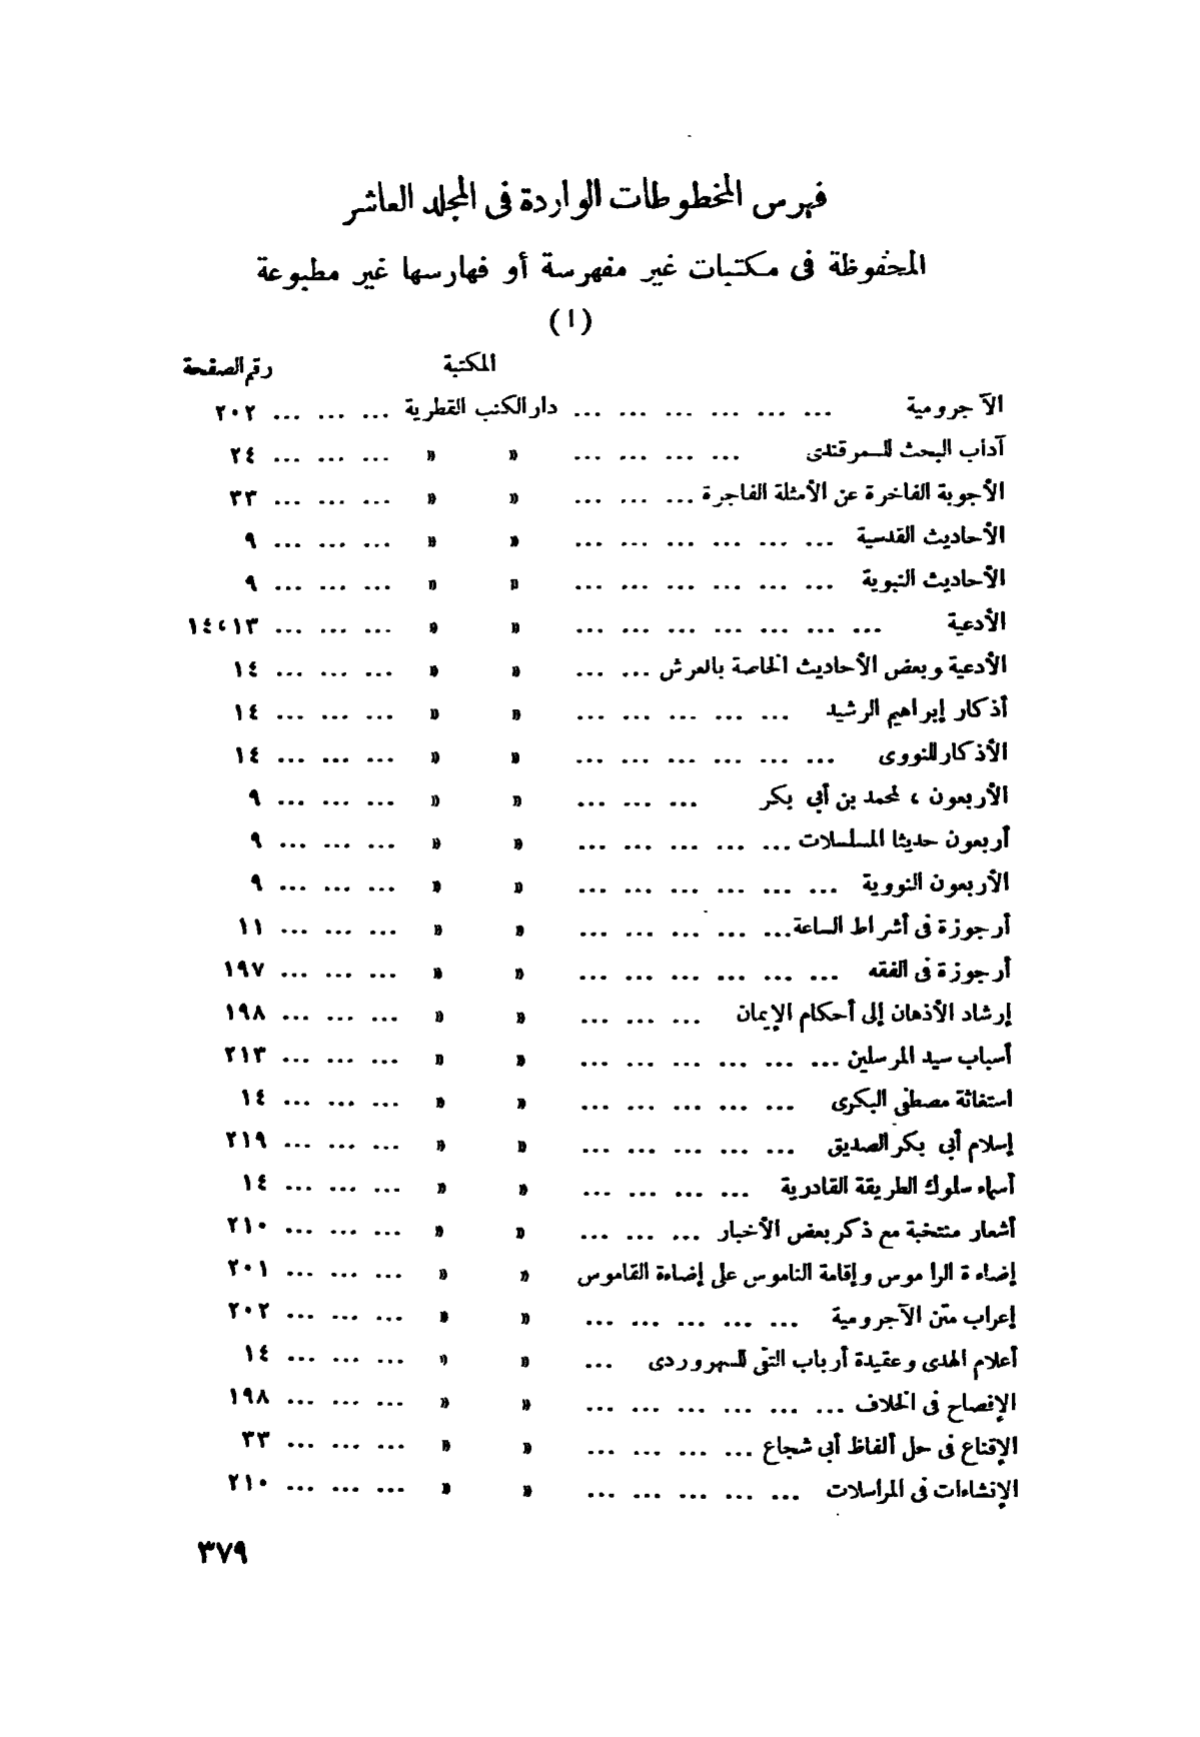 فهرس المخطوطات الواردة فى المجلد العاشر
المحفوظة فى مكتبات غير مفهرسة أو فهارسها غير مطبوعة
(ا)
المكتبة رقم الصفحة
الآجرومية ... ... ... ... ... ... دار الكتب القطرية ... ... ... ٢٠٢
آداب البحث للسمرقندى ... ... ... ... » » ... ... ... ٢٤
الأجوبة الفاخرة عن الأمثلة الفاجرة ... ... ... » » ... ... ... ٣٣
الأحاديث القدسية ... ... ... ... ... ... » » ... ... ... ٩
الأحاديث النبوية ... ... ... ... ... ... » » ... ... ... ٩
الأدعية ... ... ... ... ... ... ... » » ... ... ... ١٣، ١٤
الأدعية وبعض الأحاديث الخاصة بالعرش ... ... » » ... ... ... ١٤
أذكار إبراهيم الرشيد ... ... ... ... ... » » ... ... ... ١٤
الأذكار للنووى ... ... ... ... ... ... » » ... ... ... ١٤
الأربعون ، لمحمد بن أبي بكر ... ... ... » » ... ... ... ٩
أربعون حديثا المسلسلات ... ... ... ... ... » » ... ... ... ٩
الأربعون النووية ... ... ... ... ... ... » » ... ... ... ٩
أرجوزة فى أشراط الساعة ... ... ... ... ... » » ... ... ... ١١
أرجوزة فى الفقه ... ... ... ... ... ... » » ... ... ... ١٩٧
إرشاد الأذهان إلى أحكام الإيمان ... ... ... » » ... ... ... ١٩٨
أسباب سيد المرسلين ... ... ... ... ... ... » » ... ... ... ٢١٣
استغاثة مصطفى البكرى ... ... ... ... ... » » ... ... ... ١٤
إسلام أبي بكر الصديق ... ... ... ... ... » » ... ... ... ٢١٩
أسماء سلوك الطريقة القادرية ... ... ... ... » » ... ... ... ١٤
أشعار منتخبة مع ذكر بعض الأخبار ... ... ... » » ... ... ... ٢١٠
إضاءة الراموس وإقامة الناموس على إضاءة القاموس » » ... ... ... ٢٠١
إعراب متن الآجرومية ... ... ... ... ... » » ... ... ... ٢٠٢
أعلام الهدى وعقيدة أرباب التقى للسهروردى ... » » ... ... ... ١٤
الإفصاح فى الخلاف ... ... ... ... ... ... » » ... ... ... ١٩٨
الإقناع فى حل ألفاظ أبي شجاع ... ... ... ... » » ... ... ... ٣٣
الإنشاءات فى المراسلات ... ... ... ... ... » » ... ... ... ٢١٠
٣٧٩